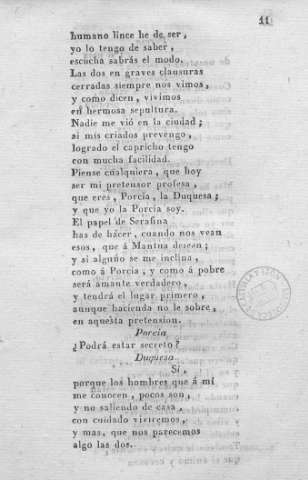 11
humano lince he de ser,
yo lo tengo de saber,
escucha sabrás el modo.
Las dos en graves clausuras
cerradas siempre nos vimos,
y como dicen, vivimos
en hermosa sepultura.
Nadie me vió en la ciudad;
si mis criados prevengo,
logrado el capricho tengo
con mucha facilidad.
Piense cualquiera, que hoy
ser mi pretensor profesa,
que eres, Porcia, la Duquesa;
y que yo la Porcia soy.
El papel de Serafina
has de hácer, cuando nos vean
esos, que á Mantua deseen;
y si alguno se me inclina,
como á Porcia, y como á pobre
será amante verdadero,
y tendrá el lugar primero,
aunque hacienda no le sobre,
en aquesta pretension.
Porcia
¿Podrá estar secreto?
Duquesa
Si,
porque los hombres que á mí
me conocen, pocos son,
y no saliendo de casa,
con cuidado viviremos,
y mas, que nos parecemos
algo las dos.